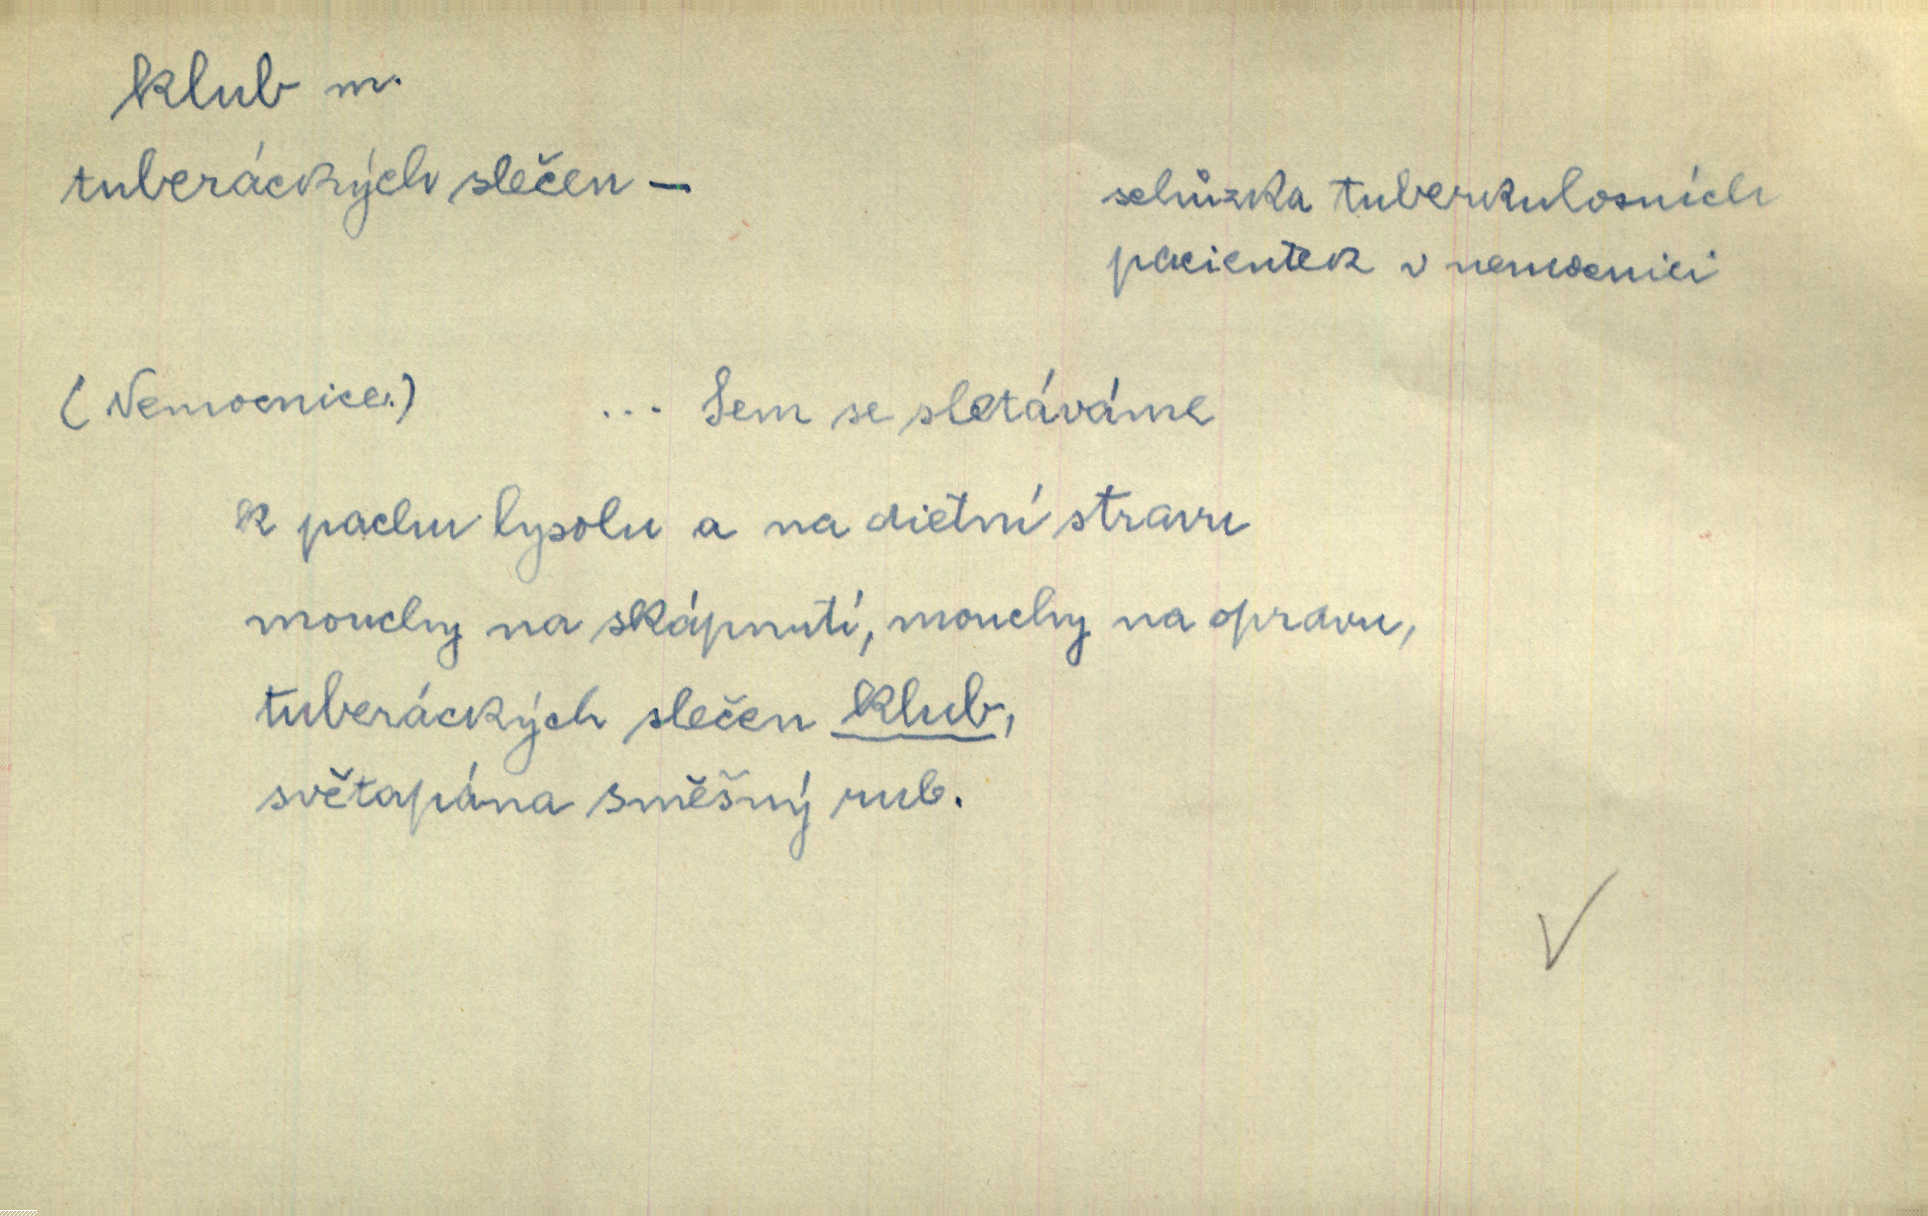 klub m.
tuberáckých slečen —
schůzka tuberkulosních
pacientek v nemocnici
(Nemocnice.) ... Sem se sletáváme
k pachu lysolu a na dietní stravu
mouchy na skápnutí, mouchy na opravu,
tuberáckých slečen klub,
světapána směšný rub.